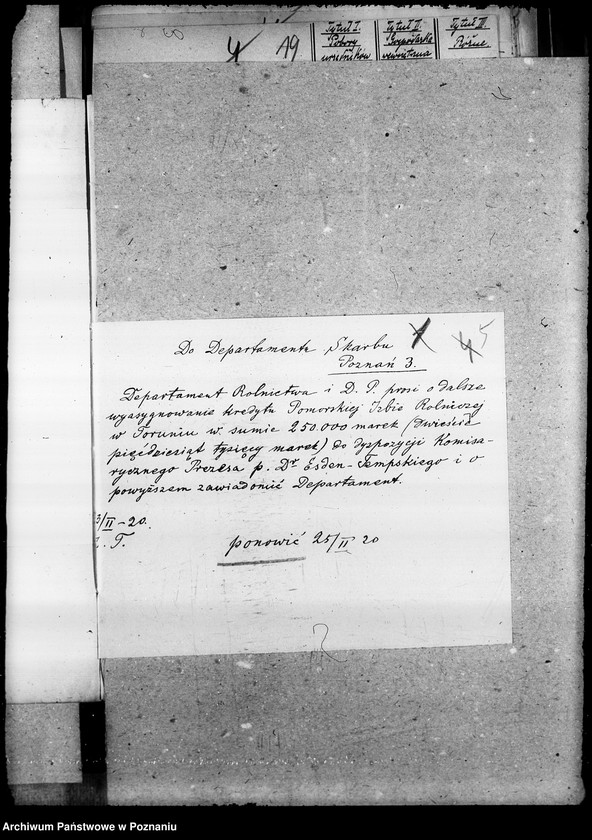 4 19
Tytuł I. Pobory urzędników
Tytuł II. Gospodarka wewnętrzna
Tytuł III. Różne
Do Departamentu Skarbu
Poznań 3.
4 5
Departament Rolnictwa i D. P. prosi o dalsze
wyasygnowanie kredytu Pomorskiej Izbie Rolniczej
w Toruniu w sumie 250.000 marek (dwieście
pięćdziesiąt tysięcy marek) do dyspozycji Komisa-
rycznego Prezesa p. Dr Esden-Tempskiego i o
powyższem zawiadomić Departament.
3/II-20.
T.
ponowić 25/II 20
Archiwum Państwowe w Poznaniu